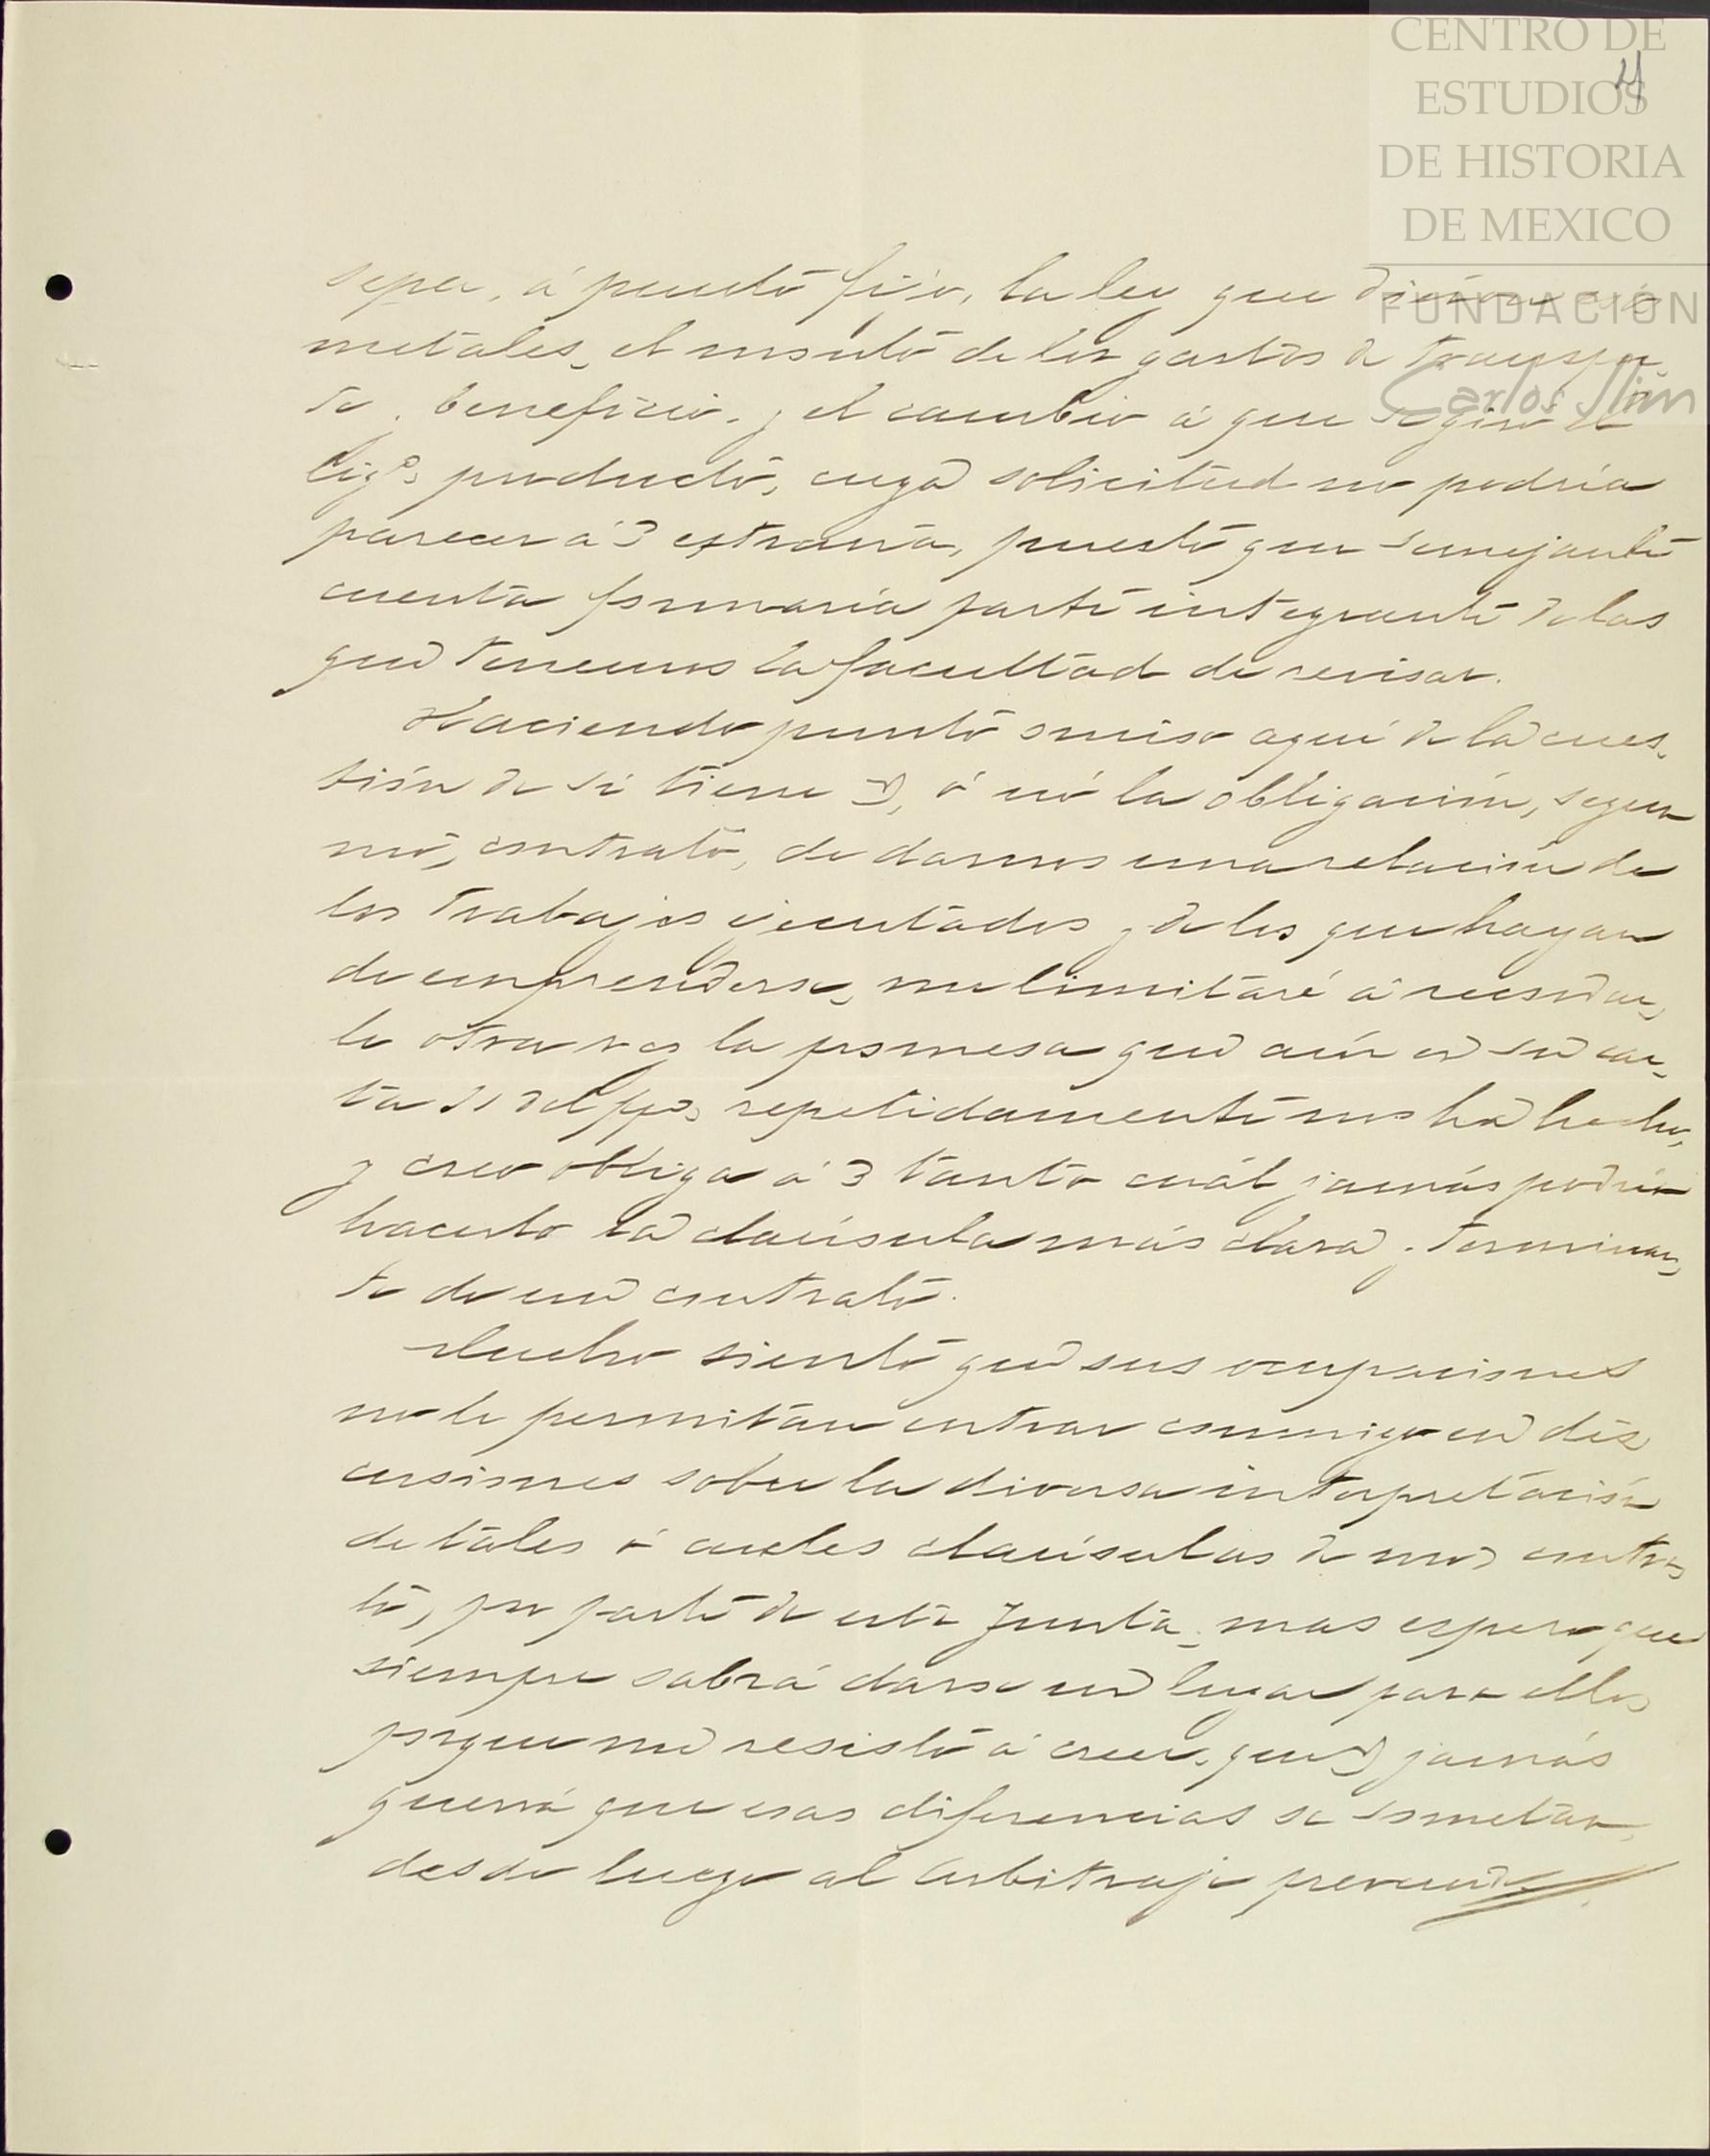 CENTRO DE
ESTUDIOS
DE HISTORIA
DE MEXICO
FUNDACIÓN
Carlos Slim
4
sepa, á punto fijo, la ley que dieron esos
metales, el monto de los gastos de transpor-
te, beneficio, y el cambio á que se giró el
líq.º producto, cuya solicitud no podría
parecer á extraña, puesto que semejante
cuenta formaría parte integrante de las
que tenemos la facultad de revisar.
Haciendo punto omiso aquí de la cues-
tión de si tiene , ó nó la obligación, segun
nro, contrato, de darnos una relación de
los trabajos ejecutados y de los que hayan
de emprenderse, me limitaré á recordar-
le otra vez la promesa que aún en su car-
ta del repetidamente nos ha hecho,
y creo obliga á tanto cuál jamás podría
hacerlo la claúsula más clara y terminan-
te de un contrato.
Mucho siento que sus ocupaciones
no le permitan entrar conmigo en dis-
cusiones sobre la diversa interpretación
de tales ó cuales claúsulas de nro contra-
to, por parte de esta Junta; mas espero que
siempre sabrá darse un lugar para ellas
porque me resisto á creer, que jamás
querrá que esas diferencias se sometan
desde luego al arbitraje